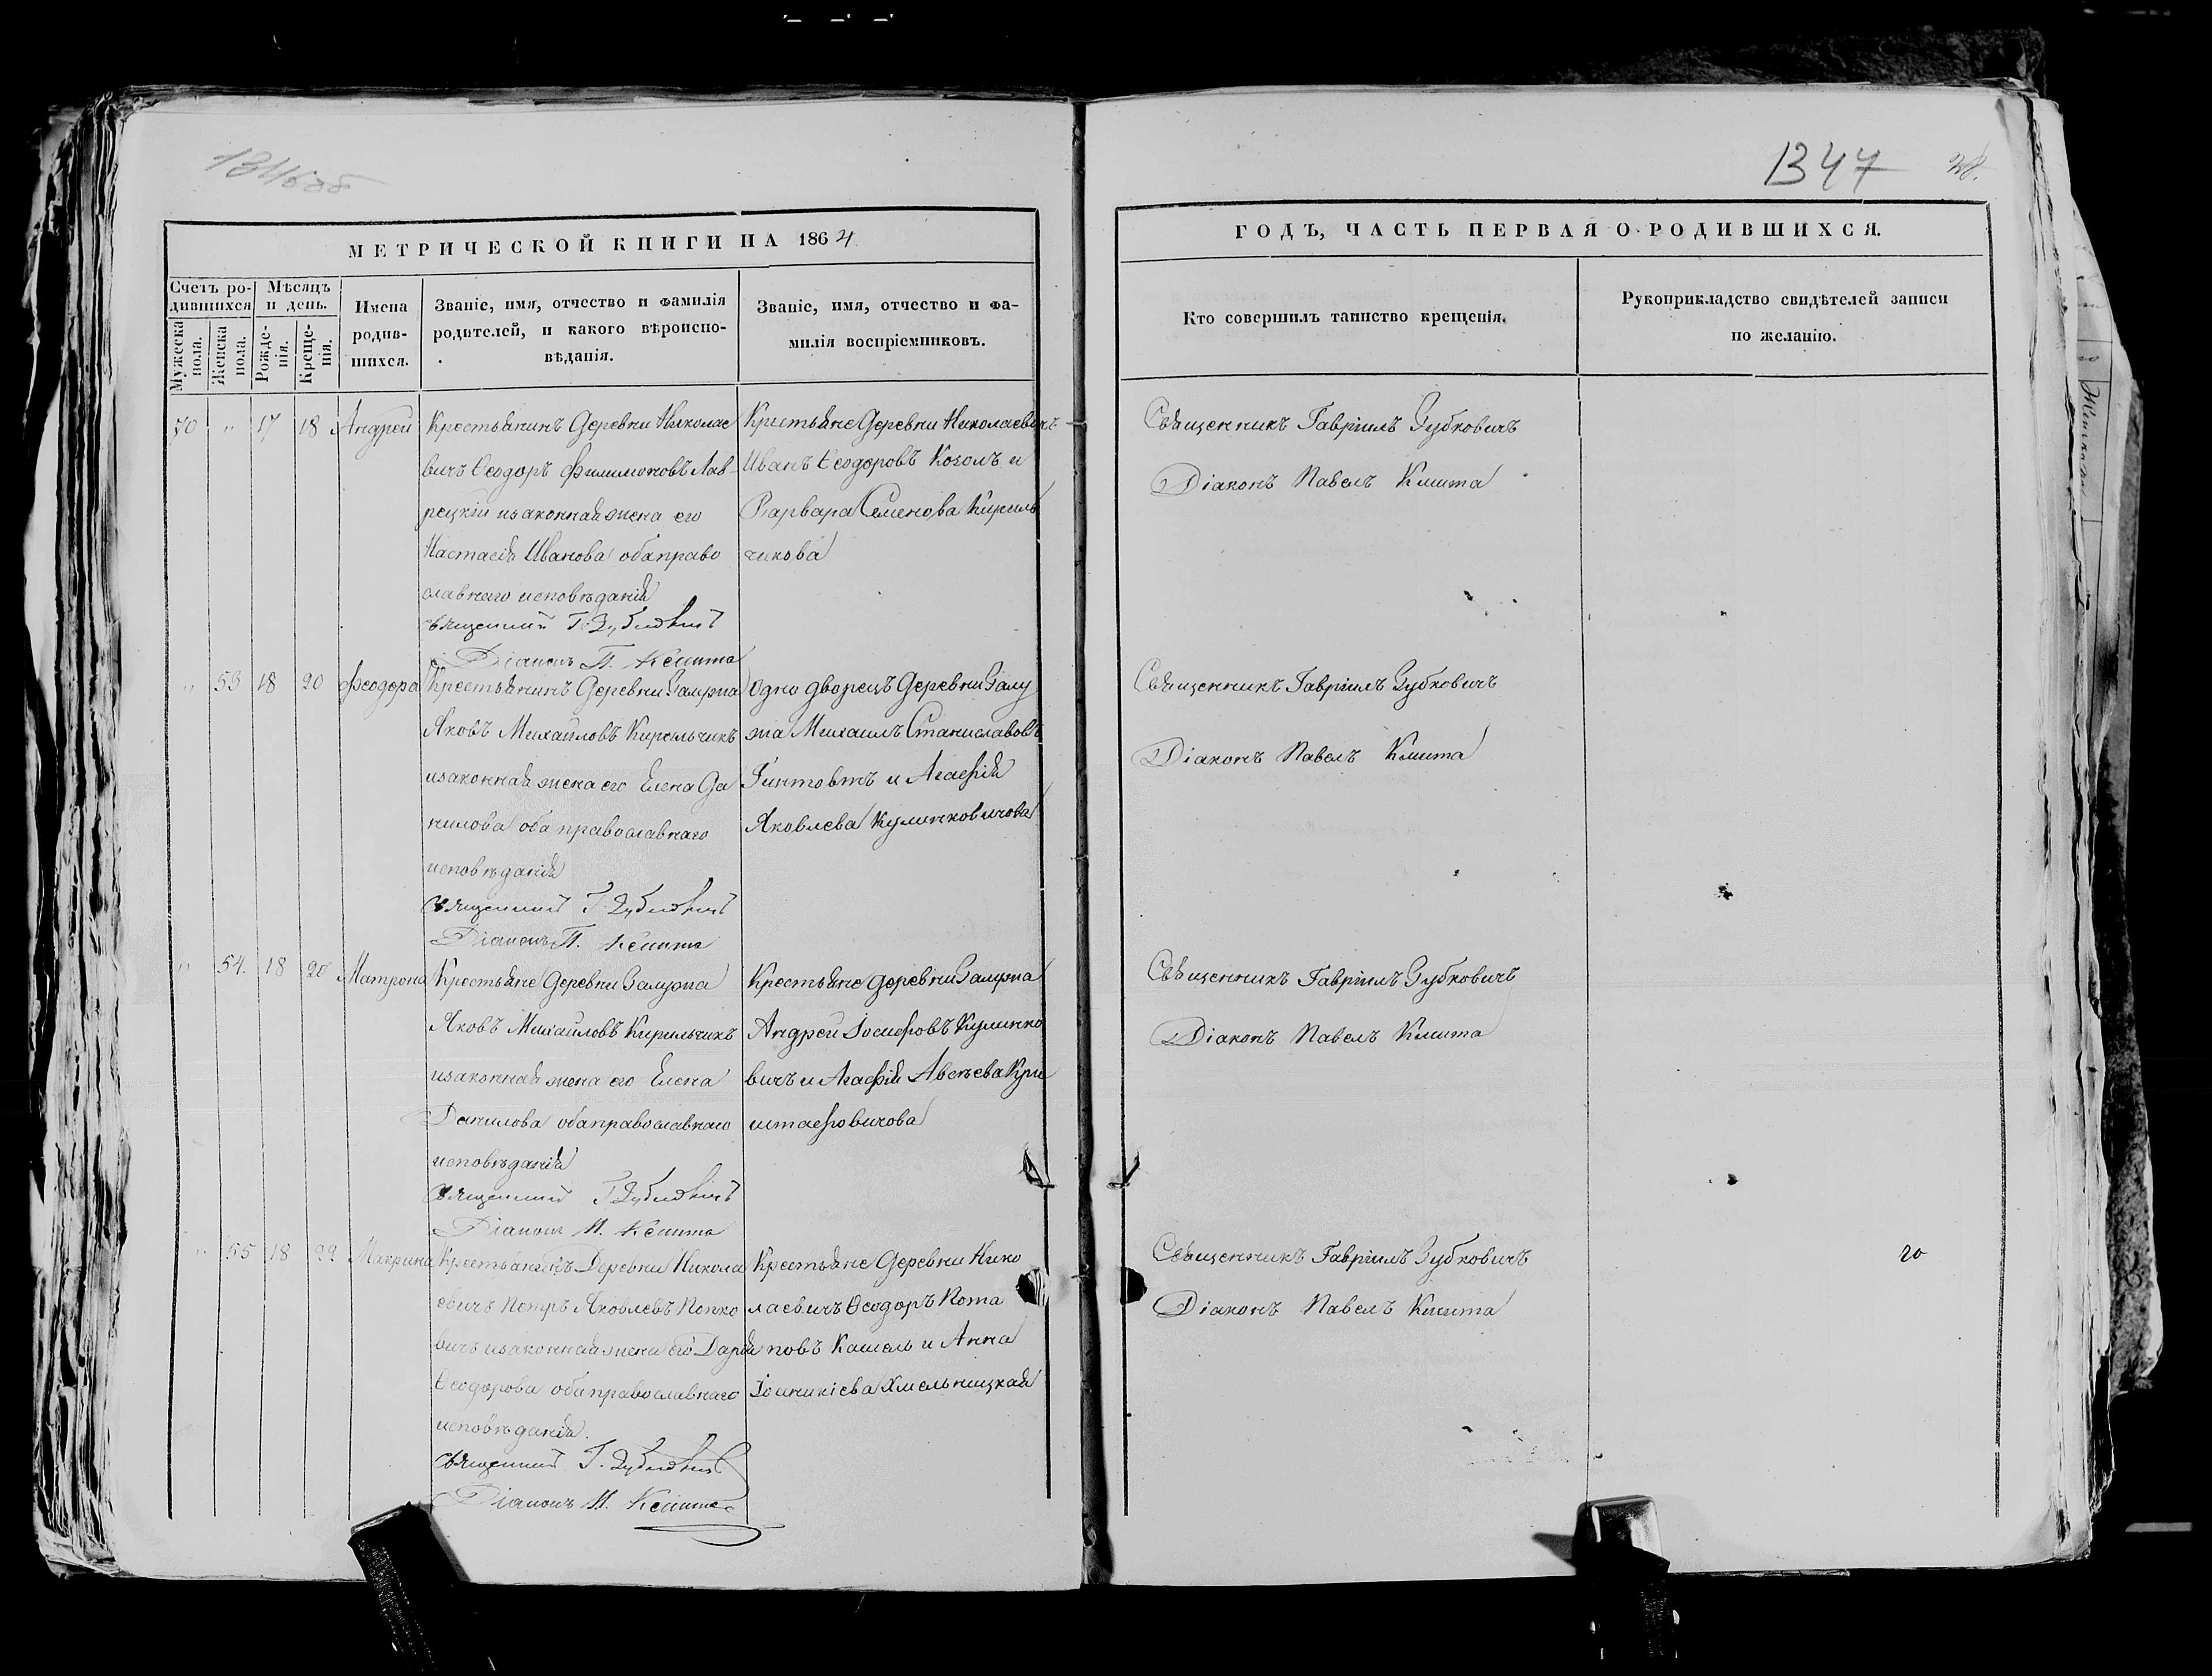 1347
МЕТРИЧЕСКОЙ КНИГИ НА 1864
Счетъ ро-
дившихся
Мѣсяцъ
и день.
Мужеска
пола.
Женска
пола.
Рожде-
нія.
Креще-
нія.
Имена
родив-
шихся.
Званіе, имя, отчество и фамилія
родителей, и какого вѣроиспо-
вѣданія.
Званіе, имя, отчество и фа-
милія воспріемниковъ.
ГОДЪ, ЧАСТЬ ПЕРВАЯ О РОДИВШИХСЯ.
Кто совершилъ таинство крещенія.
Рукоприкладство свидѣтелей записи
по желанію.
50 " 17 18 Андрей
Крестьянинъ Деревни Николае
вичъ Ѳеодоръ Филимоновъ Лав-
рецкій и законная жена его
Настасія Иванова оба право
славнаго исповѣданія
священникъ Г. Зубковичъ
Діаконъ П. Кмита
Крестьяне Деревни Николаевичъ
Иванъ Ѳеодоровъ Козолъ и
Варвара Семенова Кириль
чикова
Священникъ Гавріилъ Зубковичъ
Діаконъ Павелъ Кмита
" 53 18 20 Феодора
Крестьянинъ Деревни Залужа
Яковъ Михайловъ Кирильчикъ
и законная жена его Елена Да
нилова оба православнаго
исповѣданія
священникъ Г. Зубковичъ
Діаконъ П. Кмита
Однодворецъ Деревни Залу
жа Михаилъ Станиславовъ
Гинтовтъ и Агафія
Яковлева Кулинковичова
Священникъ Гавріилъ Зубковичъ
Діаконъ Павелъ Кмита
" 54. 18 20 Матрона
Крестьяне Деревни Залужа
Яковъ Михайловъ Кирильчикъ
и законная жена его Елена
Данилова оба православнаго
исповѣданія
священникъ Г. Зубковичъ
Діаконъ П. Кмита
Крестьяне деревни Залужа
Андрей Іосифовъ Кулинко
вичъ и Агафія Авсѣева Кри
штафовичова
Священникъ Гавріилъ Зубковичъ
Діаконъ Павелъ Кмита
" 55 18 22 Макрина
Крестьянинъ Деревни Никола
евичъ Петръ Яковлевъ Попко
вичъ и законная жена его Дарія
Ѳеодорова оба православнаго
исповѣданія.
священникъ Г. Зубковичъ
Діаконъ П. Кмита
Крестьяне Деревни Нико
лаевичъ Ѳеодоръ Пота
повъ Кашель и Анна
Іоиникіева Хмельницкая
Священникъ Гавріилъ Зубковичъ
Діаконъ Павелъ Кмита